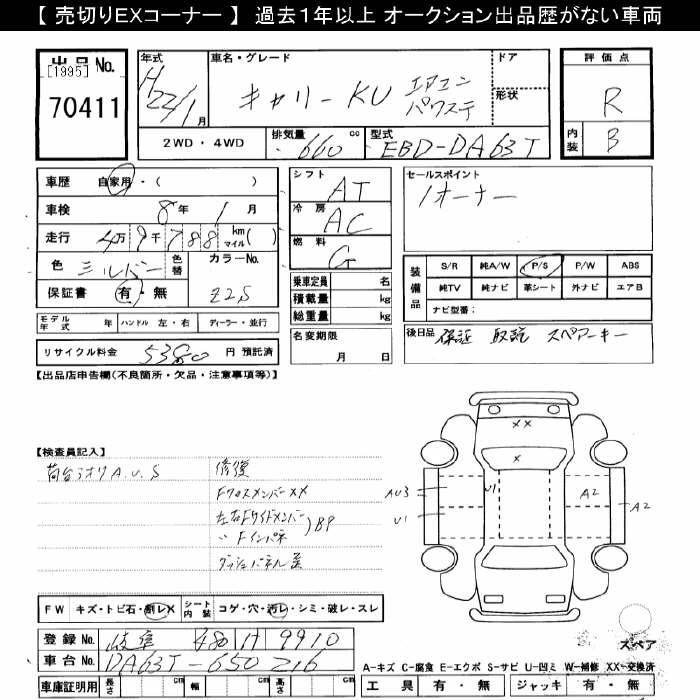 【 売切りEXコーナー 】 過去１年以上 オークション出品歴がない車両
出品No.
[1995]
70411
年式
H22/1月
車名・グレード
キャリーKU エアコン
パワステ
ドア
形状
2WD・4WD
排気量 660 cc
型式 EBD-DA63T
評価点
R
内装 B
車歴 自家用・( )
車検 8年 1月
走行 4万9千788 km マイル( )
色 シルバー
色替
カラーNo.
Z2S
保証書 有・無
シフト AT
冷房 AC
燃料 G
セールスポイント
1オーナー
乗車定員 名
積載量 kg
総重量 kg
装備品
S/R 純A/W P/S P/W ABS
純TV 純ナビ 革シート 外ナビ エアB
ナビ型番：
モデル年式 年 ハンドル 左・右 ディーラー・並行
名変期限
月 日
後日品 保証 取説 スペアーキー
リサイクル料金 5380 円 預託済
【出品店申告欄(不良箇所・欠品・注意事項等)】
【検査員記入】
荷台アオリA.U.S
修復
FクロスメンバーXX
左右Fサイドメンバー
〃 Fインパネ
BP
ダッシュパネル歪
XX
X
AU3
U1
U1
A2
A2
スペア
FW キズ・トビ石・割レX
シート内装 コゲ・穴・汚レ・シミ・破レ・スレ
登録No. 岐阜 480 H 9910
車台No. DA63T-650216
車庫証明用 長さ cm 幅 cm 高さ cm
A-キズ C-腐食 E-エクボ S-サビ U-凹ミ W-補修 XX-交換済
工具 有・無 ジャッキ 有・無